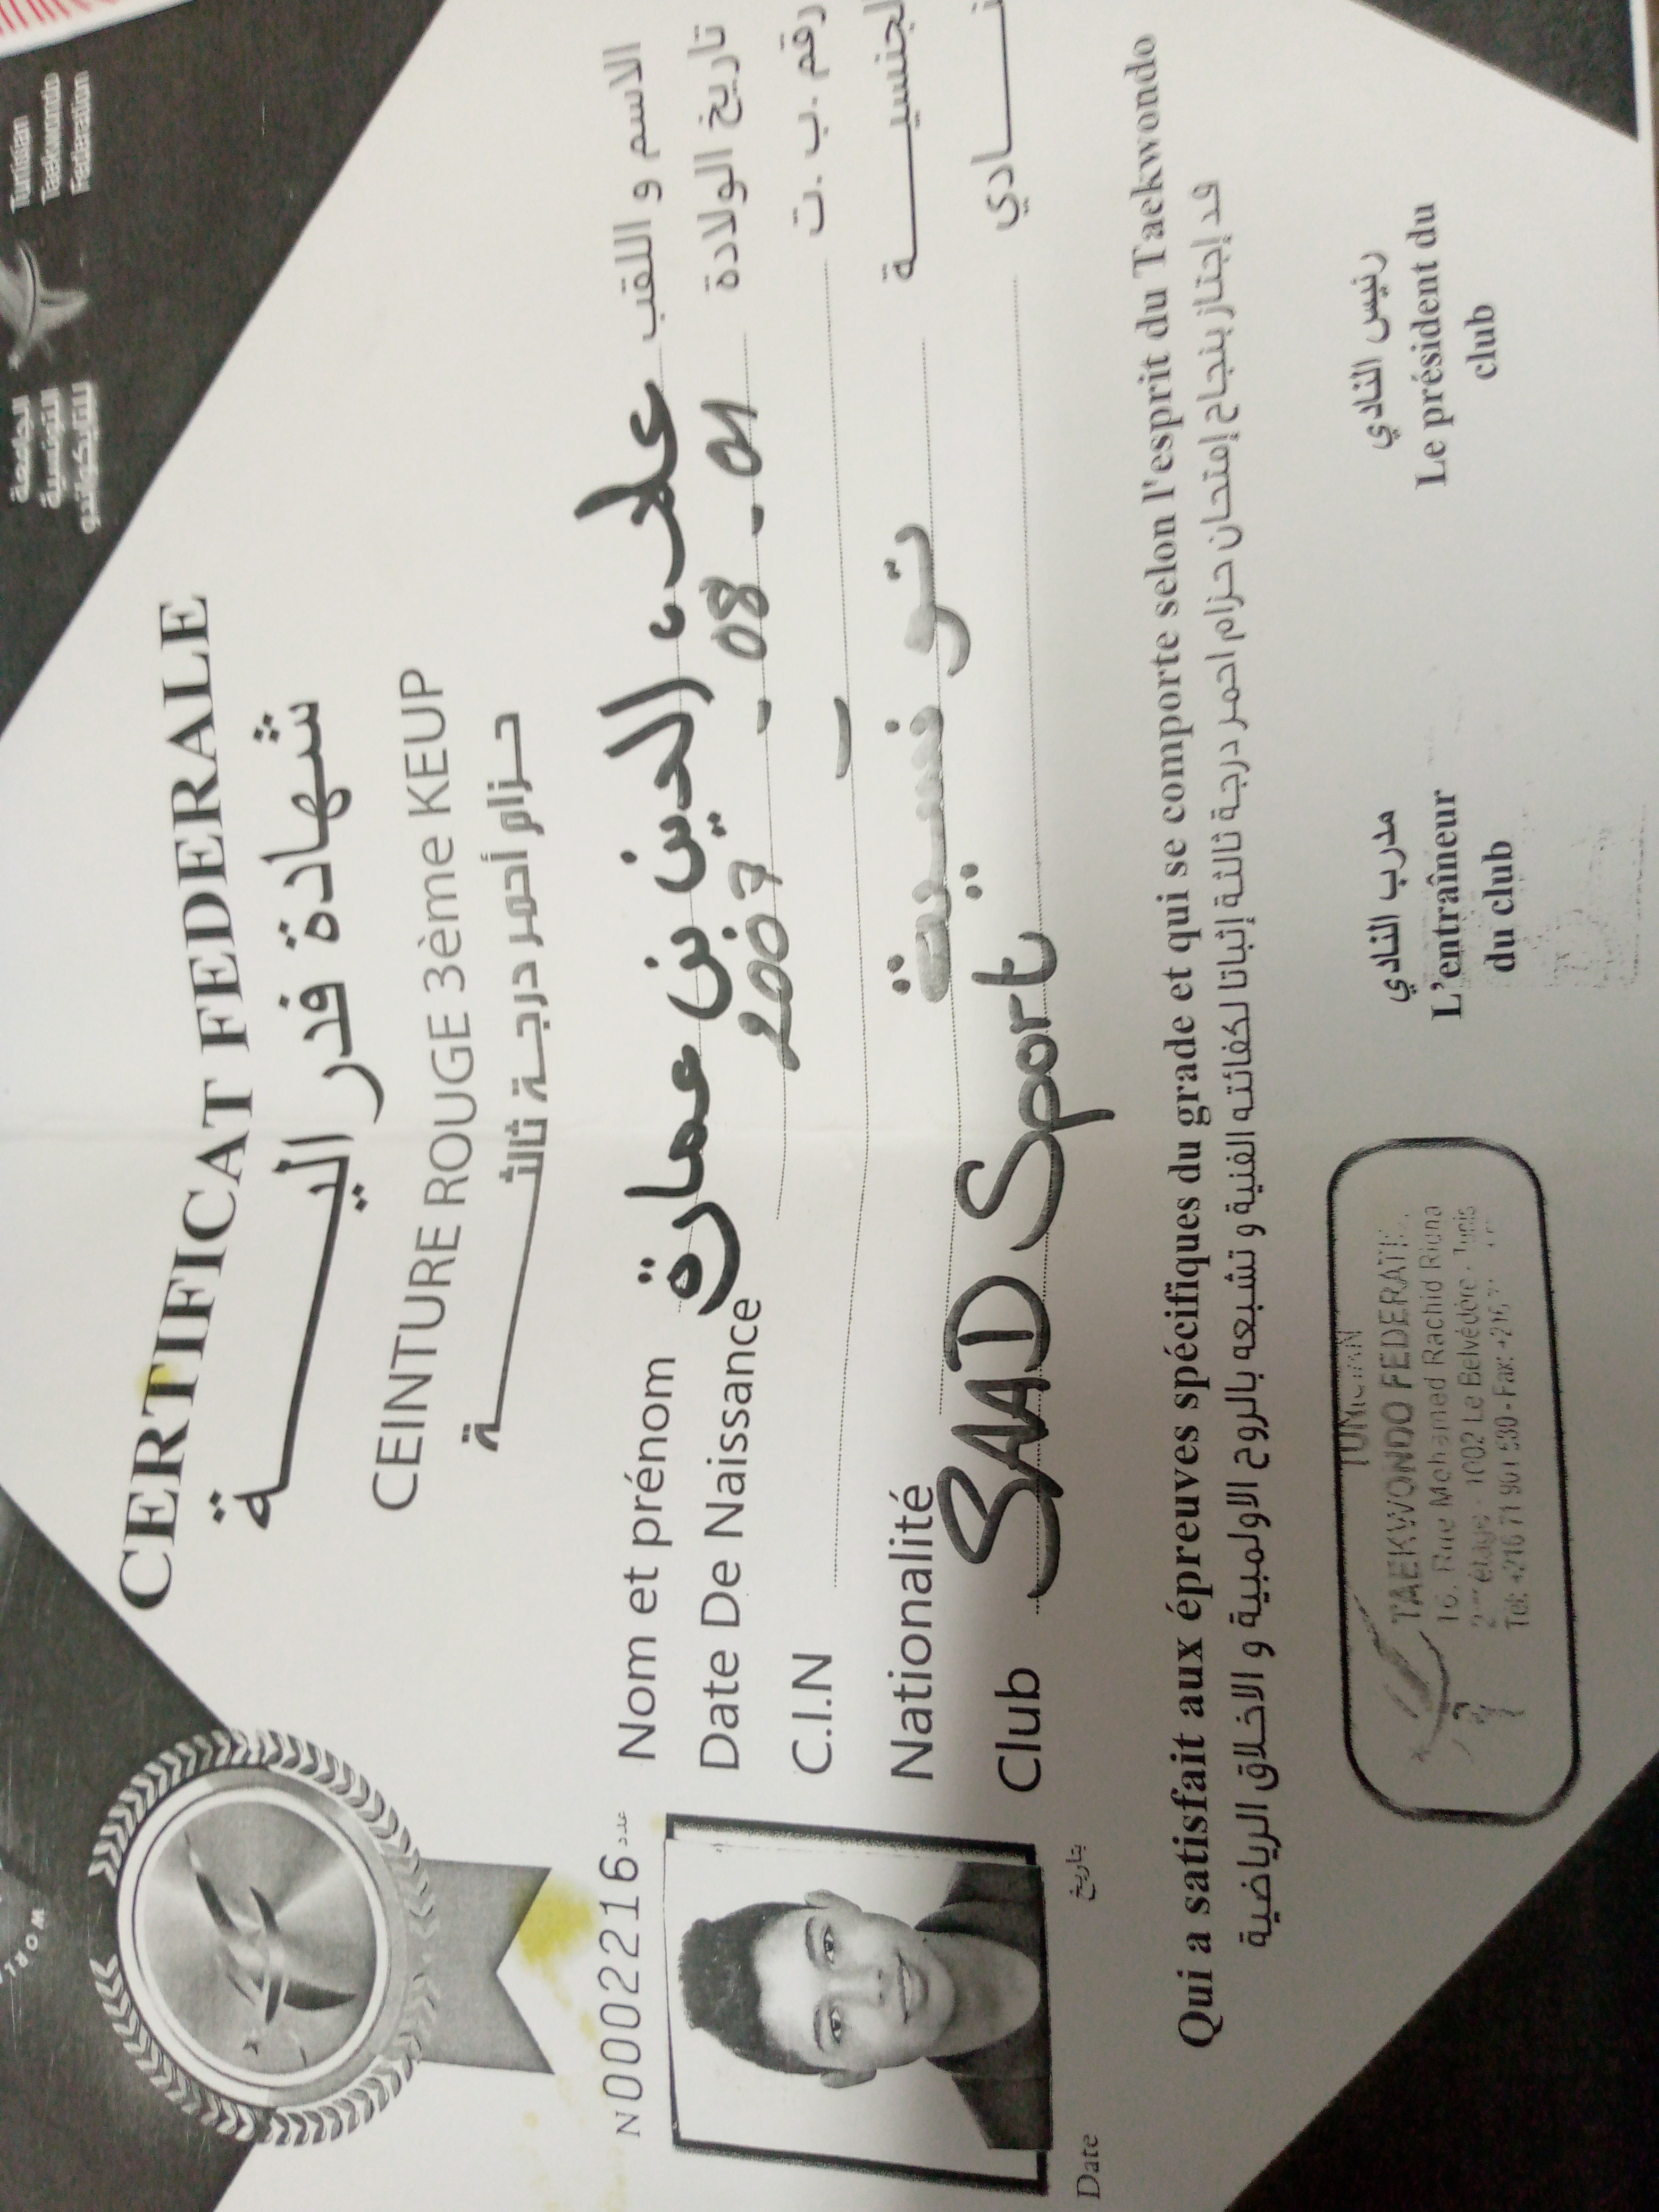 الجامعة
التونسية
للتايكواندو
Tunisian
Taekwondo
Federation
CERTIFICAT FEDERALE
شهادة فدراليـــــة
CEINTURE ROUGE 3ème KEUP
حزام أحمر درجة ثالثـــــة
N0002216 عدد
Nom et prénom علاء الدين بن عمارة الاسم و اللقب
Date De Naissance 2007 - 08 - 01 تاريخ الولادة
C.I.N رقم ب.ت.
Nationalité تونسية الجنسيـــة
Club SAAD Sport نـــادي
Date بتاريخ
Qui a satisfait aux épreuves spécifiques du grade et qui se comporte selon l'esprit du Taekwondo
قد إجتاز بنجاح إمتحان حزام احمر درجة ثالثة إثباتا لكفائته الفنية و تشبعه بالروح الاولمبية و الاخلاق الرياضية
TUNISIAN
TAEKWONDO FEDERATI
16, Rue Mohamed Rachid Ridha
étage - 1002 Le Belvédère - Tunis
Tél: +216 71 901 530 - Fax: +216
مدرب النادي
L'entraîneur
du club
رئيس النادي
Le président du
club